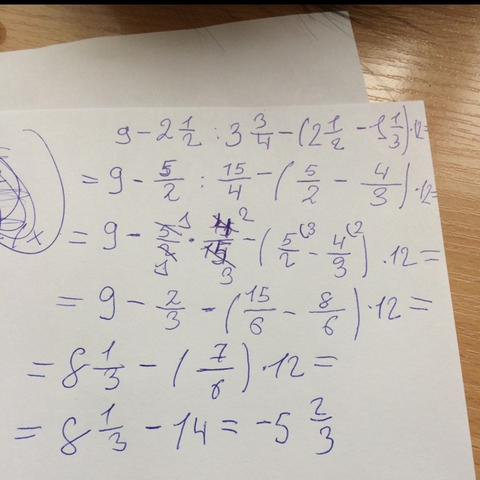 9 - 2 1/2 : 3 3/4 - (2 1/2 - 1 1/3) · 12 =
= 9 - 5/2 : 15/4 - (5/2 - 4/3) · 12 =
= 9 - 5/2 1 1 · 4/15 2 3 - (5/2 (3 - 4/3 (2) · 12 =
= 9 - 2/3 - (15/6 - 8/6) · 12 =
= 8 1/3 - (7/6) · 12 =
= 8 1/3 - 14 = -5 2/3